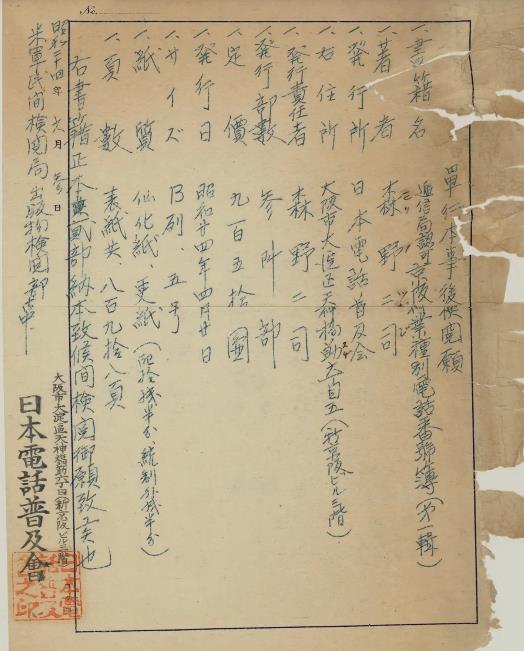 No.
單行本事後檢閲願
一、書籍名 逓信局認可京阪神職業種別電話番號簿(第一輯)
一、著者 森野二司
一、発行所 日本電話普及会
一、右住所 大阪市大淀区天神橋筋六ノ五(新京阪ビル三階)
一、発行責任者 森野二司
一、発行部数 参阡部
一、定價 九百五拾圓
一、発行日 昭和廿四年四月廿日
一、サイズ B列五号
一、紙質 仙化紙、更紙
一、頁数 表紙共、八百九拾八頁
右書籍正本貳部納本致候間検閲御願致
昭和二十四年六月参日
米軍民間検閲局出版物検閲部
大阪市大淀區天神橋筋六丁目(新京阪ビル三階)
日本電話普及會